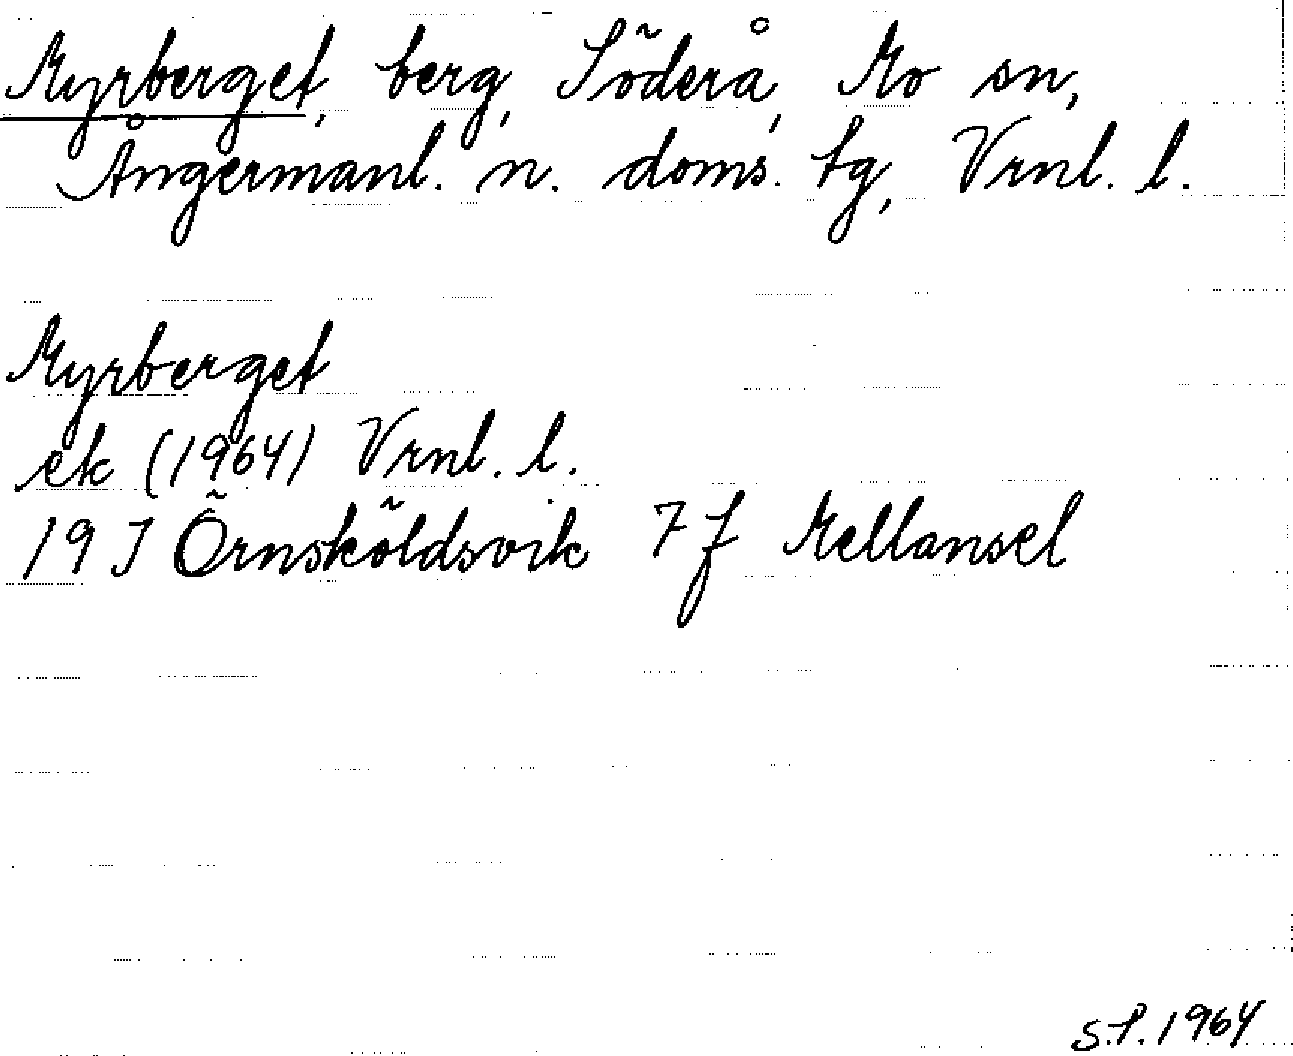 Myrberget, berg, Söderå, Mo sn,
Ångermanl. n. doms. tg, Vrnl. l.
Myrberget
ek (1964) Vrnl. l.
19 J Örnsköldsvik 7 f Mellansel
S.P. 1964